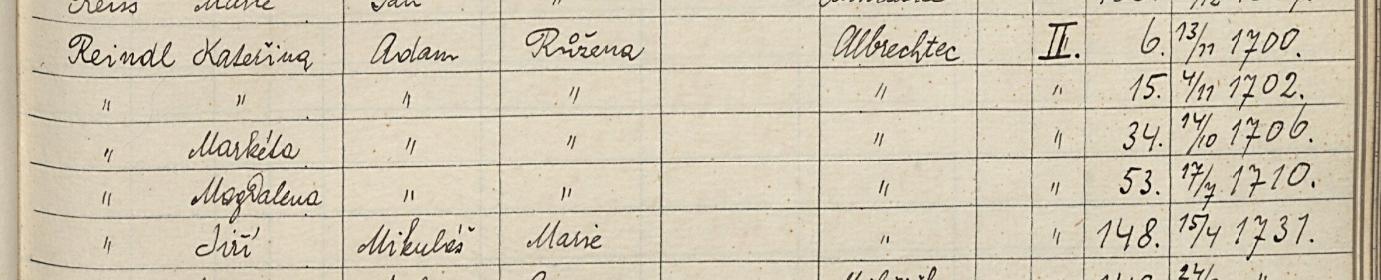 Reiss Marie Jan "
Reindl Kateřina Adam Růžena Albrechtec II. 6. 13/11 1700.
" " " " " " 15. 4/11 1702.
" Markéta " " " " 34. 14/10 1706.
" Magdalena " " " " 53. 17/7 1710.
" Jiří Mikuláš Marie " " 148. 15/4 1731.